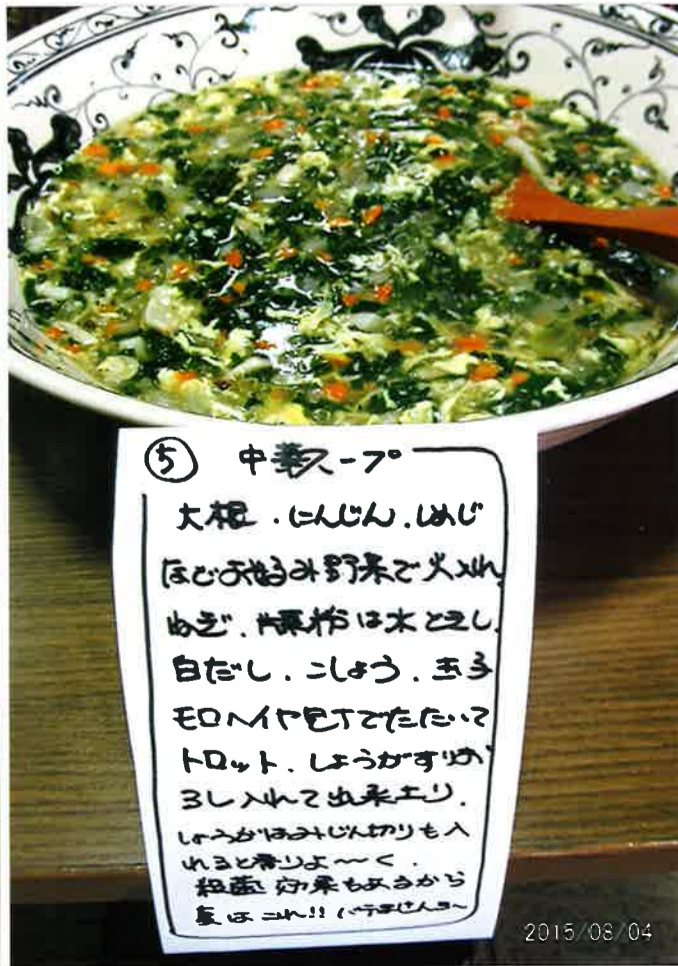 ⑤ 中華スープ
大根．にんじん．しめじ
などお好み野菜で火入れ
ねぎ．片栗粉は水ときし
白だし．こしょう．玉子
モロヘイヤ包丁でたたいて
トロット．しょうがすりお
ろし入れて出来上り．
しょうがはみじん切りも入
れると香りよ〜く．
殺菌効果もあるから
夏はこれ!!
2015/08/04